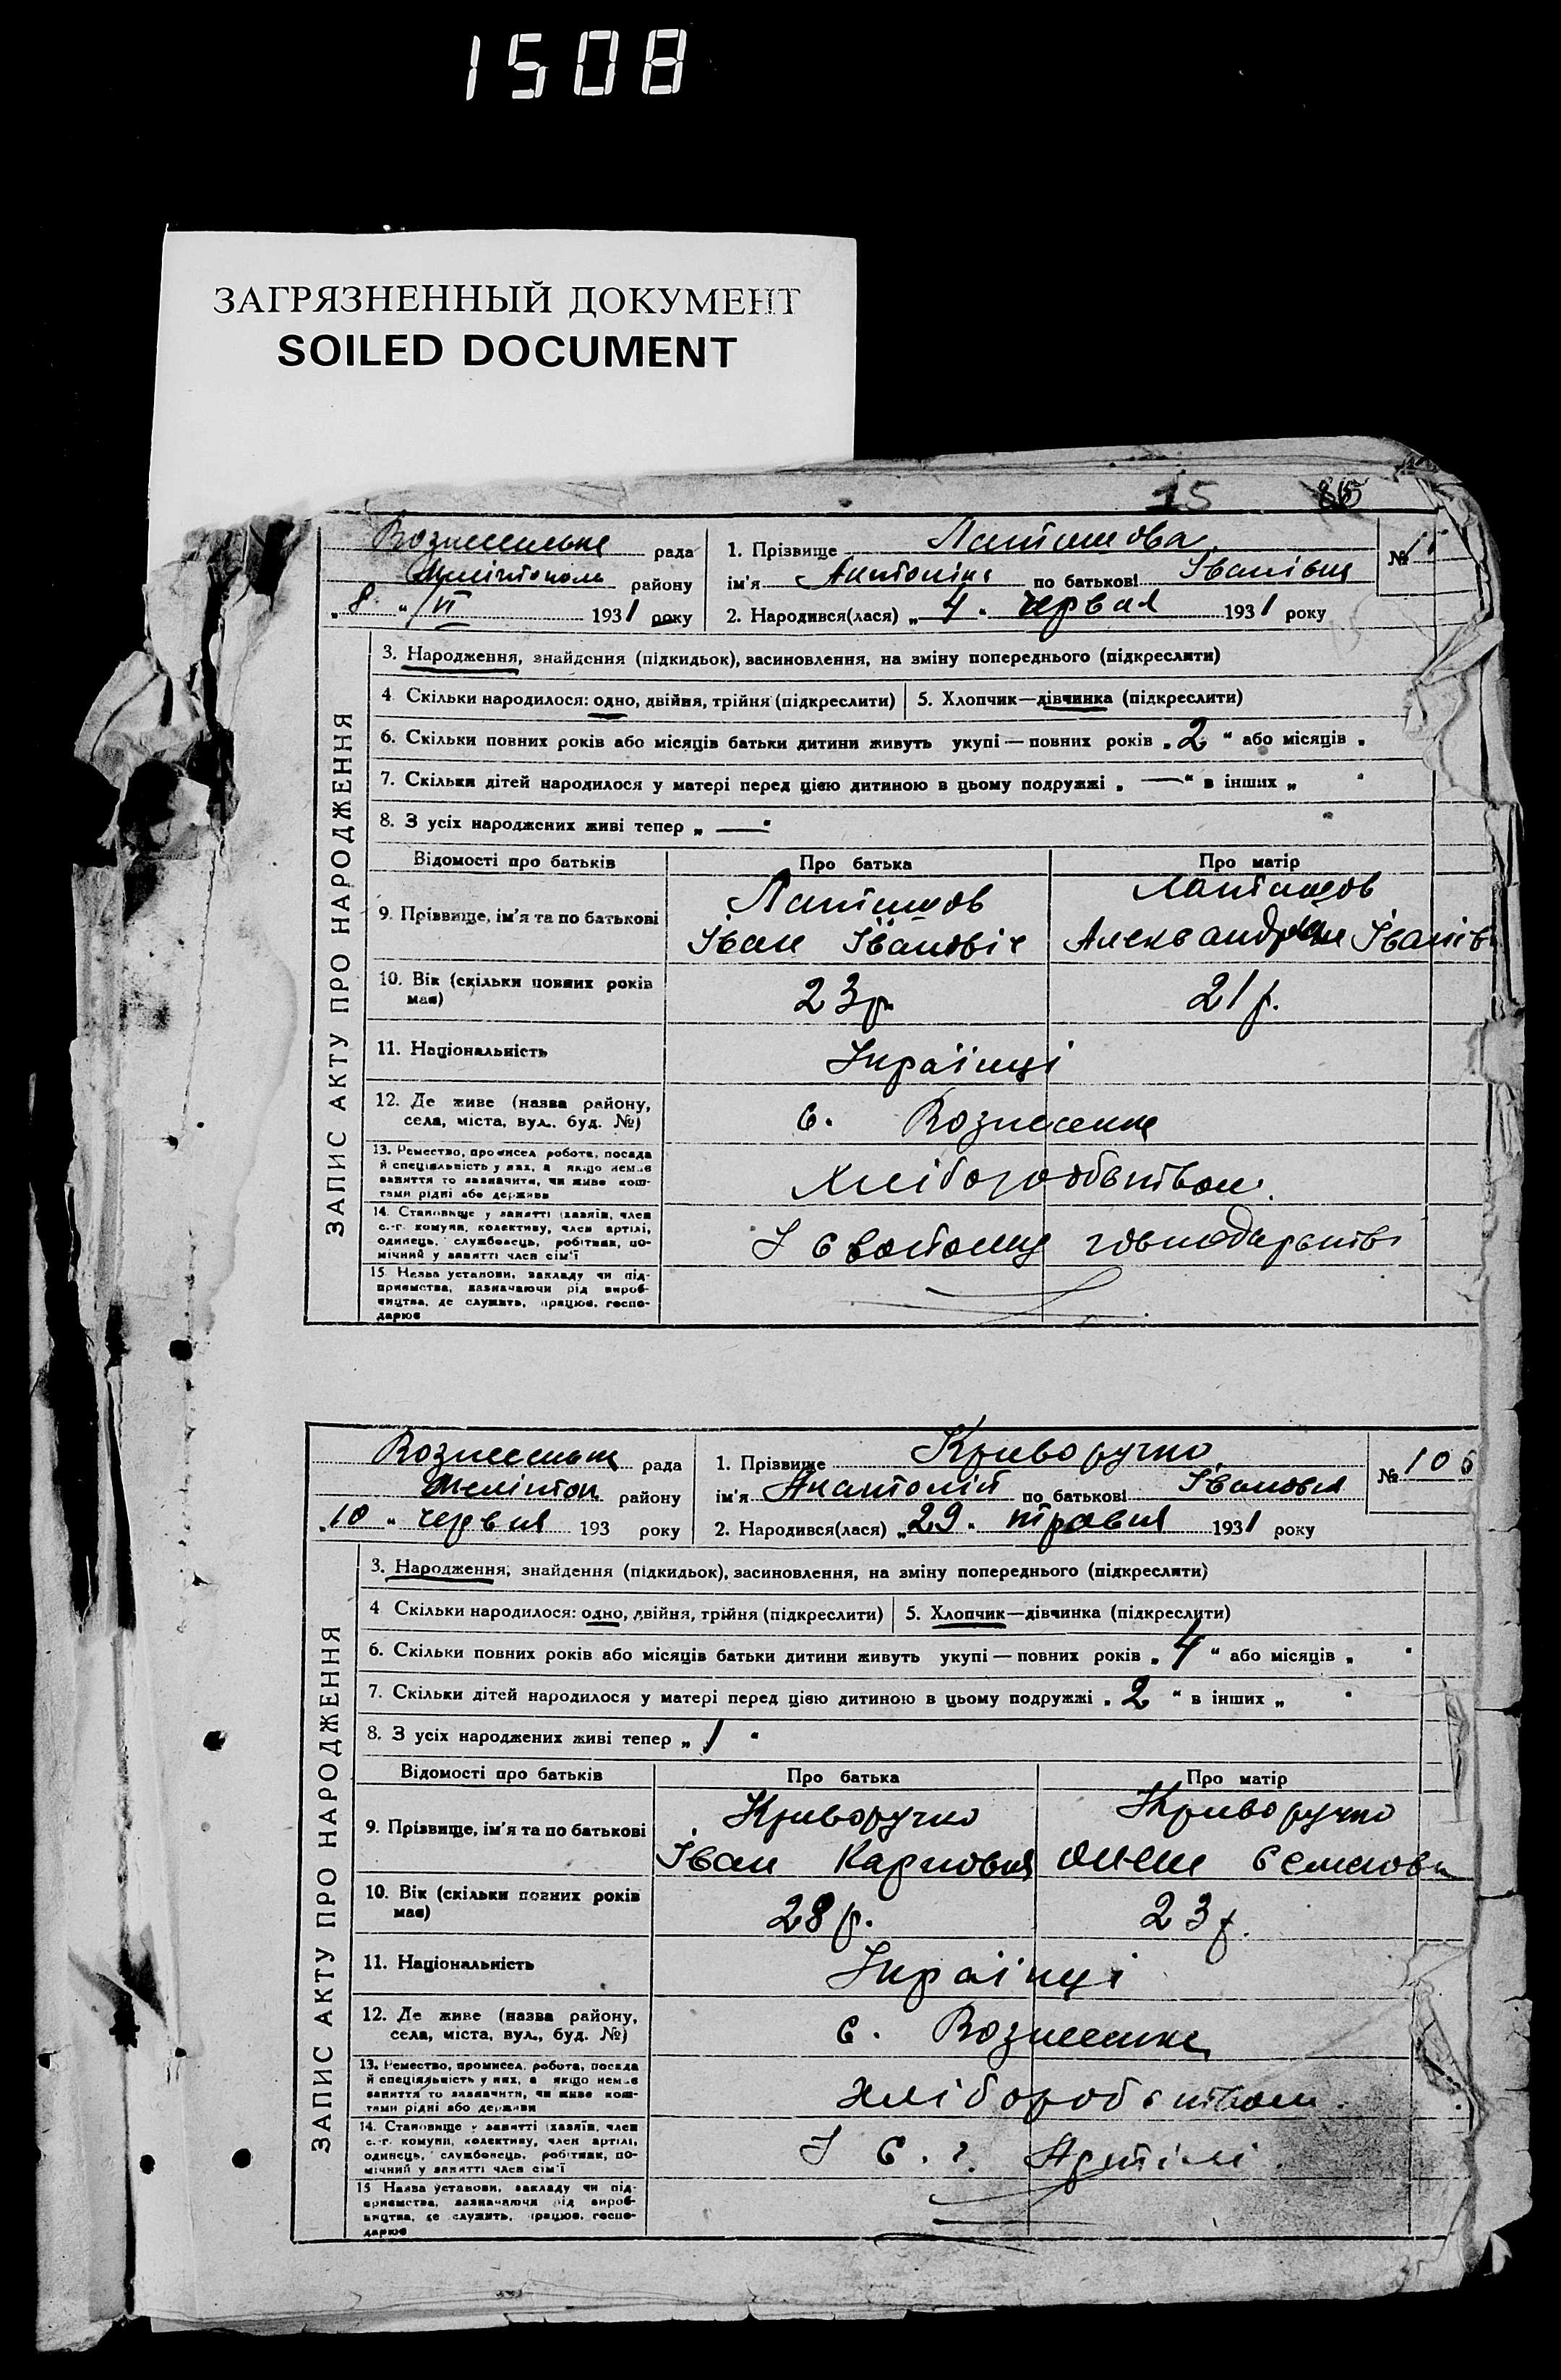 1508
ЗАГРЯЗНЕННЫЙ ДОКУМЕНТ
SOILED DOCUMENT
15
рада
району
"8" VI 1931 року
1. Прізвище
№
ім'я Антоніна по батькові Іванівна
2. Народився(лася) "4" червня 1931 року
ЗАПИС АКТУ ПРО НАРОДЖЕННЯ
3. Народження, знайдення (підкидьок), засиновлення, на зміну попереднього (підкреслити)
4 Скільки народилося: одно, двійня, трійня (підкреслити)
5. Хлопчик—дівчинка (підкреслити)
6. Скільки повних років або місяців батьки дитини живуть укупі — повних років „2" або місяців „
7. Скільки дітей народилося у матері перед цією дитиною в цьому подружжі „—" в інших „ "
8. З усіх народжених живі тепер „—"
Відомості про батьків
Про батька
Про матір
9. Прізвище, ім'я та по батькові
Іван Івановіч
Іванів
10. Вік (скільки повних років має)
23 р.
21 р.
11. Національність
Українці
12. Де живе (назва району, села, міста, вул., буд. №)
с. Вознесенка
13. Ремество, промисел, робота, посада
й спеціяльність у них, а якщо немає
заняття то зазначити, чи живе кош-
тами рідні або держави
14. Становище у занятті (хазяїн, член
с.-г. комуни, колективу, член артілі,
одинець, службовець, робітник, по-
мічний у занятті член сім'ї
господарьств
15 Назва установи, закладу чи під-
приємства, зазначаючи рід вироб-
ництва, де служить, працює, госпо-
дарює
рада
Меліптоп району
"10" червня 193 року
1. Прізвище Криворучко
№ 106
ім'я Анатолій по батькові Івановіч
2. Народився(лася) "29" травня 1931 року
ЗАПИС АКТУ ПРО НАРОДЖЕННЯ
3. Народження, знайдення (підкидьок), засиновлення, на зміну попереднього (підкреслити)
4 Скільки народилося: одно, двійня, трійня (підкреслити)
5. Хлопчик—дівчинка (підкреслити)
6. Скільки повних років або місяців батьки дитини живуть укупі — повних років „4" або місяців „ "
7. Скільки дітей народилося у матері перед цією дитиною в цьому подружжі „2" в інших „ "
8. З усіх народжених живі тепер „1"
Відомості про батьків
Про батька
Про матір
9. Прізвище, ім'я та по батькові
Криворучко
Криворучко
Іван Карпович
10. Вік (скільки повних років має)
28 р.
23 р.
11. Національність
Українці
12. Де живе (назва району, села, міста, вул., буд. №)
с. Вознесенка
13. Ремество, промисел, робота, посада
й спеціяльність у них, а якщо немає
заняття то зазначити, чи живе кош-
тами рідні або держави
хлібороб
14. Становище у занятті (хазяїн, член
с.-г. комуни, колективу, член артілі,
одинець, службовець, робітник, по-
мічний у занятті член сім'ї
У С. Г. Артілі
15 Назва установи, закладу чи під-
приємства, зазначаючи рід вироб-
ництва, де служить, працює, госпо-
дарює